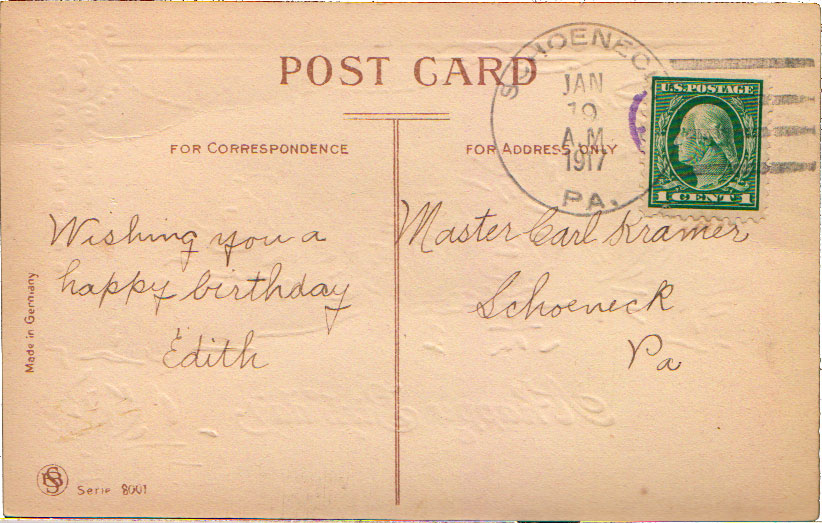 POST CARD
SCHOENECK
JAN
19
A.M.
1917
PA.
U.S. POSTAGE
1 CENT 1
FOR CORRESPONDENCE
FOR ADDRESS ONLY
Wishing you a
happy birthday
Edith
Master Carl Kramer
Schoeneck
Pa
Made in Germany
Serie 8001